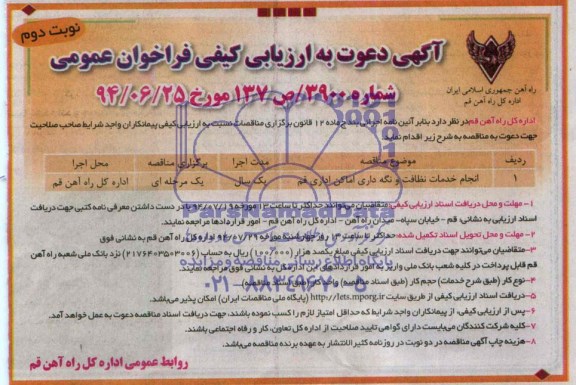 نوبت دوم
آگهی دعوت به ارزیابی کیفی فراخوان عمومی
شماره ۳۹۰۰/ص/۱۳۷ مورخ ۹۴/۰۶/۲۵
راه آهن جمهوری اسلامی ایران
اداره کل راه آهن قم
اداره کل راه آهن قم در نظر دارد بنابر آئین نامه اجرائی بند ج ماده ۱۲ قانون برگزاری مناقصات نسبت به ارزیابی کیفی پیمانکاران واجد شرایط صاحب صلاحیت
جهت دعوت به مناقصه به شرح زیر اقدام نماید
ردیف موضوع مناقصه مدت اجرا برگزاری مناقصه محل اجرا
۱ انجام خدمات نظافت و نگه داری اماکن اداری قم یک سال یک مرحله ای اداره کل راه آهن قم
۱- مهلت و محل دریافت اسناد ارزیابی کیفی: متقاضیان می‌توانند حداکثر تا ساعت ۱۳ مورخه با در دست داشتن معرفی نامه کتبی جهت دریافت
اسناد ارزیابی به نشانی: قم - خیابان سپاه - میدان راه آهن - اداره کل راه آهن قم - امور قراردادها مراجعه نمایند.
۲- مهلت و محل تحویل اسناد تکمیل شده: حداکثر تا ساعت ۱۳ روز چهارشنبه مورخه ۹۴/۰۷/۲۹ اداره کل راه آهن قم به نشانی فوق
۳- متقاضیان می‌توانند جهت دریافت اسناد ارزیابی کیفی مبلغ یکصد هزار (۱۰۰/۰۰۰) ریال به حساب (۲۱۷۶۴۰۳۵۰۳۰۰۶) نزد بانک ملی شعبه راه آهن
قم قابل پرداخت در کلیه شعب بانک ملی واریز به امور قراردادهای این اداره کل به نشانی فوق مراجعه نمایند.
۴- نوع کار (طبق شرح خدمات) حجم کار (طبق اسناد مناقصه)
۵- دریافت اسناد ارزیابی کیفی از طریق سایت http://iets.mporg.ir (پایگاه ملی مناقصات ایران) امکان پذیر می‌باشد.
۶- پس از ارزیابی کیفی، از پیمانکاران واجد شرایط که حداقل امتیاز لازم را کسب نموده باشند، جهت دریافت اسناد مناقصه دعوت به عمل خواهد آمد.
۷- کلیه شرکت کنندگان می‌بایست دارای گواهی تایید صلاحیت از اداره کل تعاون، کار و رفاه اجتماعی باشند.
۸- هزینه چاپ آگهی مناقصه در دو نوبت در روزنامه کثیر الانتشار به عهده برنده مناقصه می‌باشد.
روابط عمومی اداره کل راه آهن قم
ParsNamadData
پایگاه اطلاع رسانی مناقصه و مزایده
۰۲۱-۸۸۳۴۹۶۷۰-۵